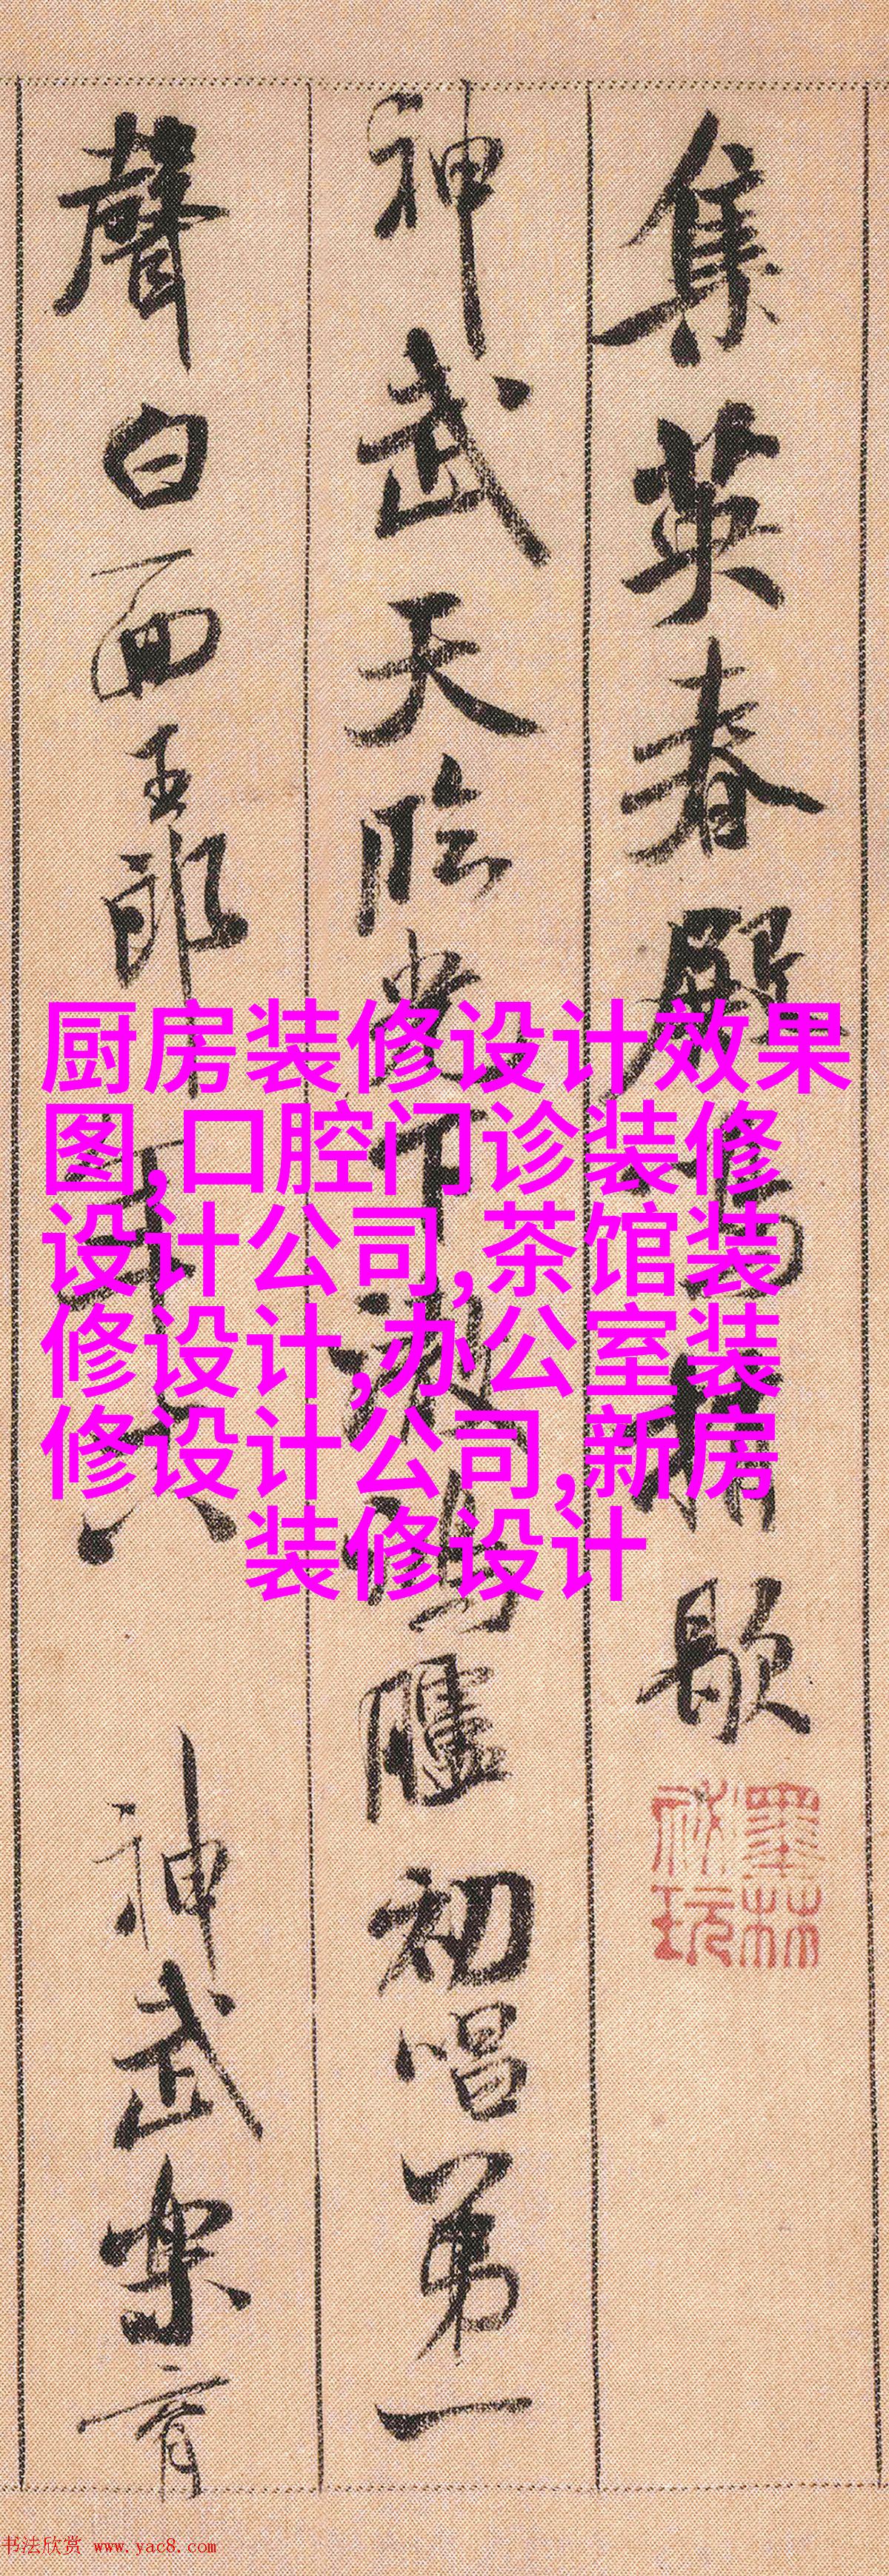 集英春殿鳴梢歇
神武天臨光下澈鴻臚初唱第一
聲白面王郎年十八 神武樂育
墨林
祕玩
厨房装修设计效果
图,口腔门诊装修
设计公司,茶馆装
修设计,办公室装
修设计公司,新房
装修设计
书法欣赏 www.yac8.com